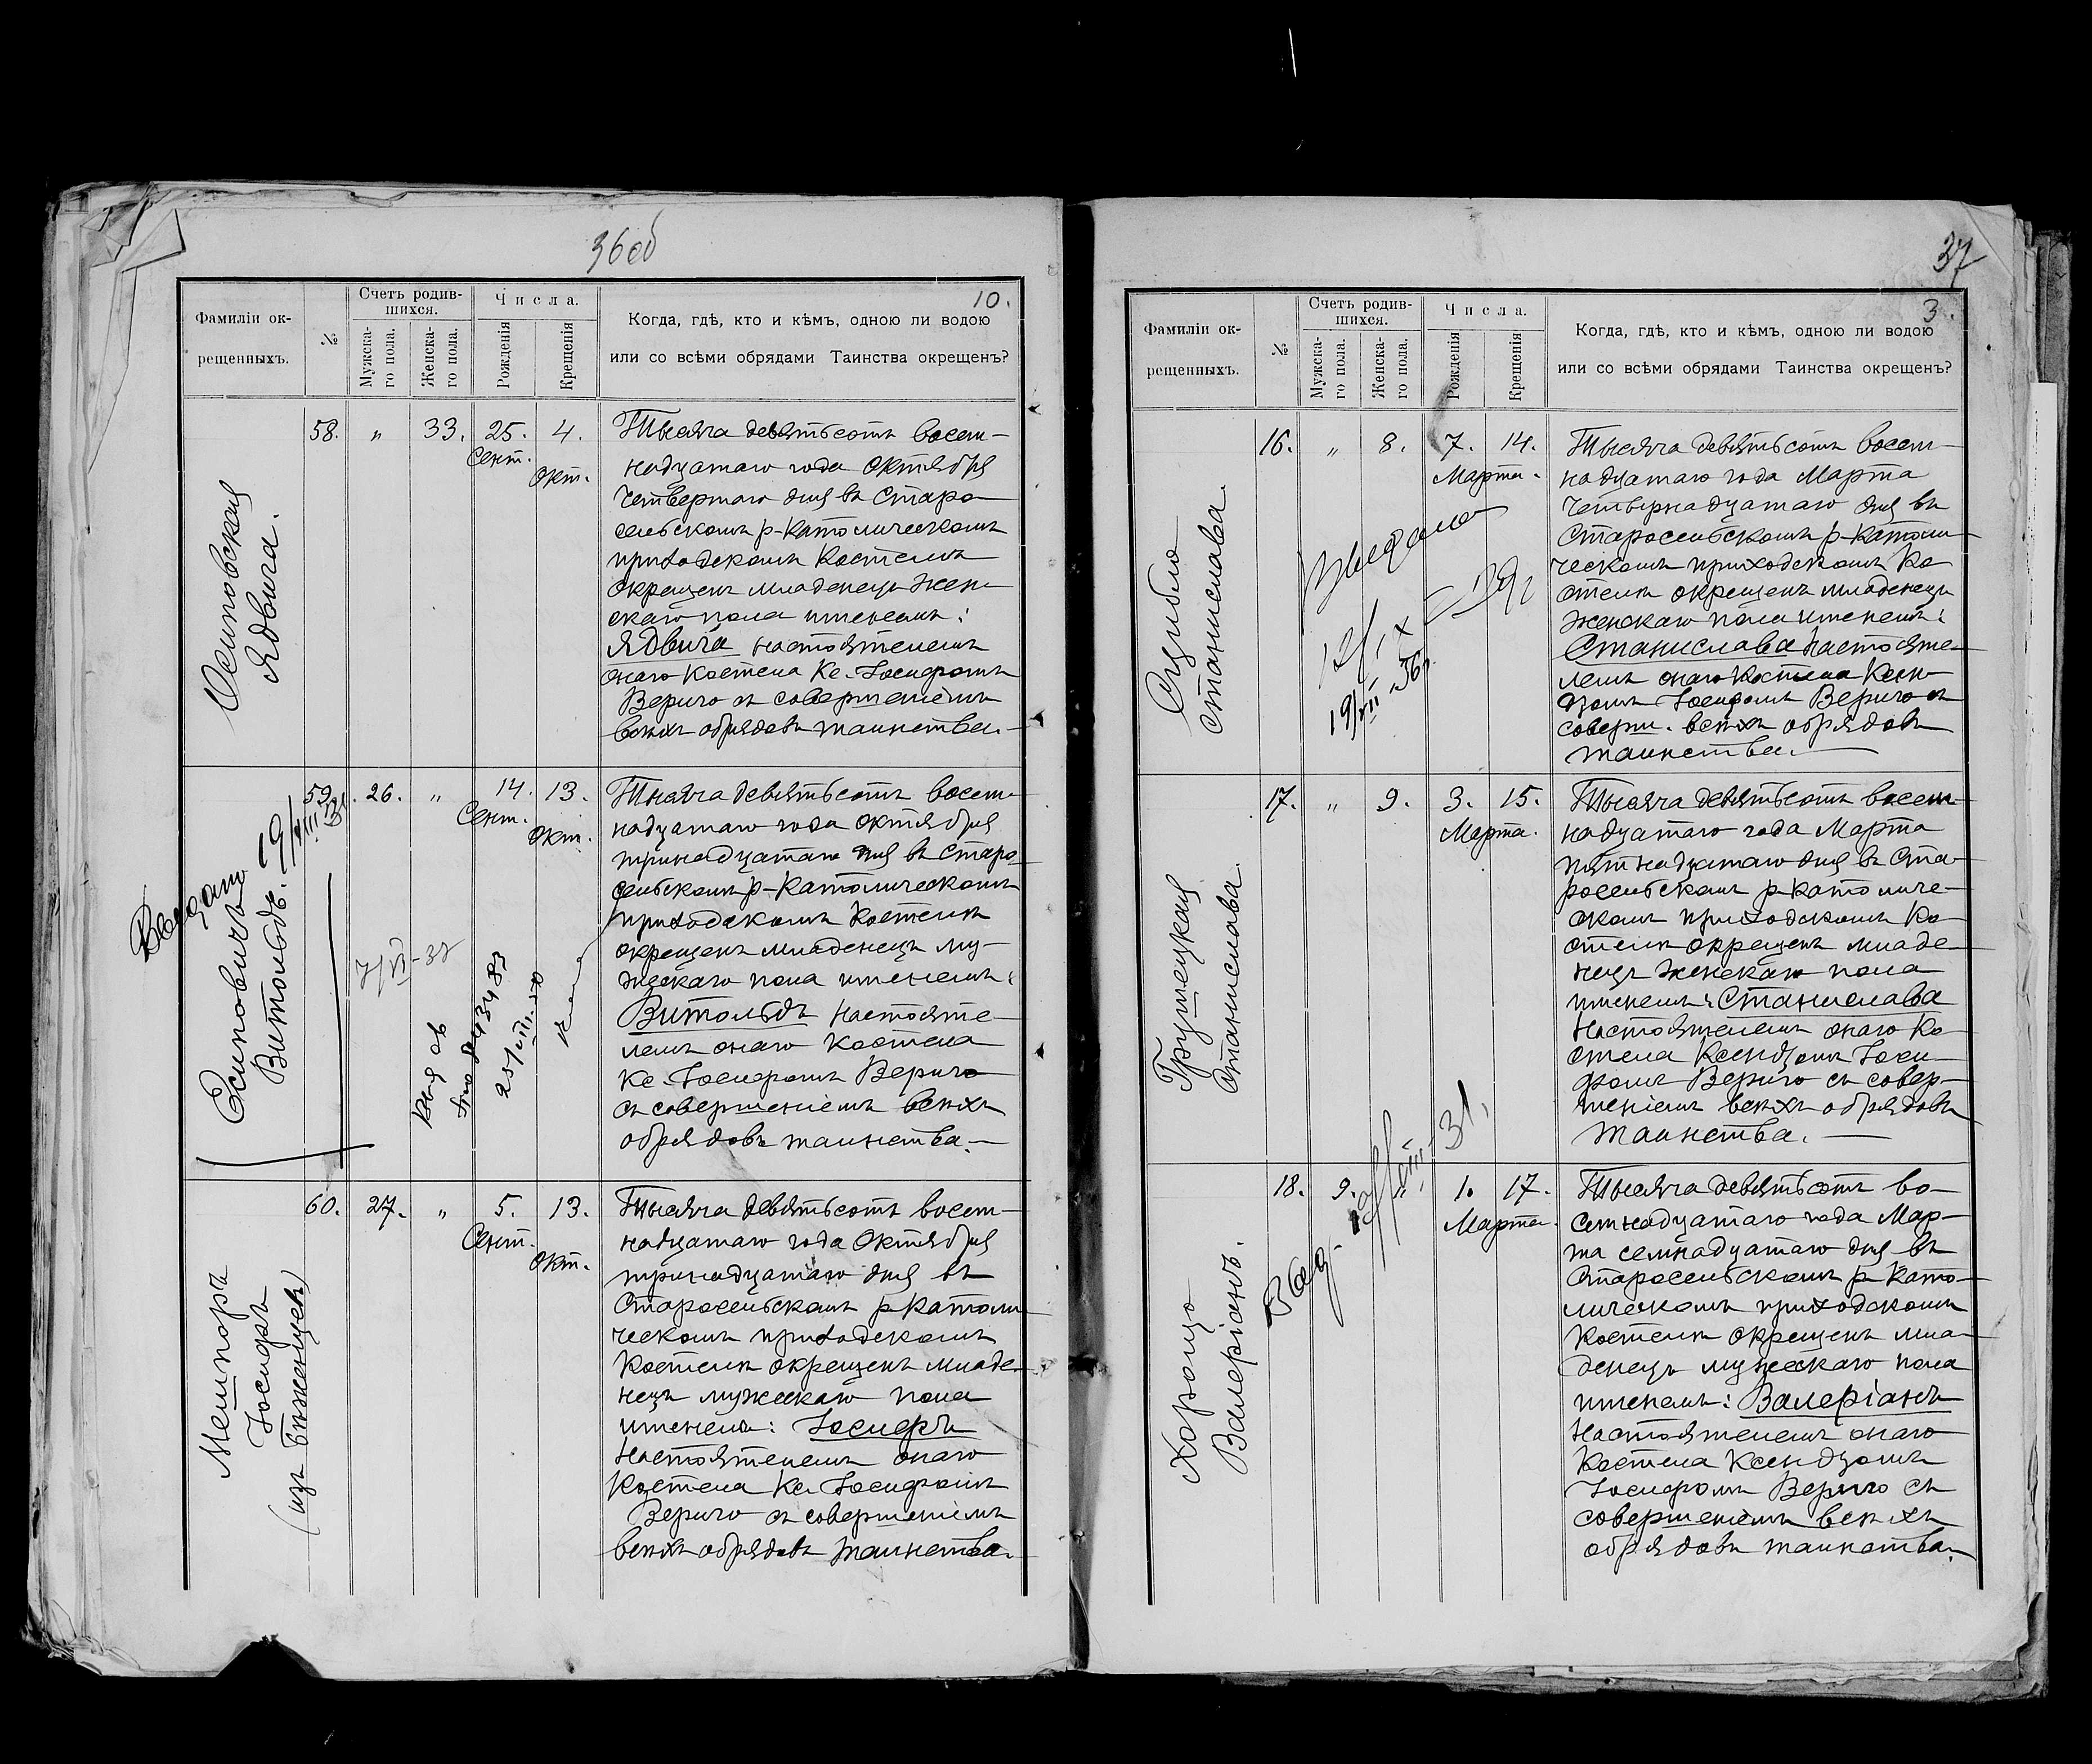 36об
10.
Фамиліи ок-
рещенныхъ.
№
Счетъ родив-
шихся.
Мужска-
го пола.
Женска-
го пола.
Числа.
Рожденія
Крещенія
Когда, гдѣ, кто и кѣмъ, одною ли водою
или со всѣми обрядами Таинства окрещенъ?
Осиповская
Ядвига.
58. " 33. 25. 4.
Сент.
Окт.
Тысяча девятьсотъ восем-
надцатаго года Октября
четвертаго дня въ Старо
сельскомъ р-католическомъ
приходскомъ Костелѣ
окрещенъ младенецъ жен-
скаго пола именемъ:
Ядвига настоятелемъ
онаго Костела Кс. Іосифомъ
Вериго съ совершеніемъ
всѣхъ обрядовъ таинства.
Есиповичъ
Витольдъ.
Выдано 19/VIII 31
59. 26. " 14. 13.
Сент.
Окт.
7/VI-37
25/VIII
Тысяча девятьсотъ восем-
надцатаго года Октября
тринадцатаго дня въ Старо
сельскомъ р-католическомъ
приходскомъ Костелѣ
окрещенъ младенецъ му-
жескаго пола именемъ:
Витольдъ настояте-
лемъ онаго Костела
Кс. Іосифомъ Вериго
съ совершеніемъ всѣхъ
обрядовъ таинства.
Мешпоръ
Іосифъ
(изъ бѣженцев)
60. 27. " 5. 13.
Сент.
Окт.
Тысяча девятьсотъ восем-
надцатаго года Октября
тринадцатаго дня въ
Старосельскомъ р-католи
ческомъ приходскомъ
Костелѣ окрещенъ младе-
нецъ мужескаго пола
именемъ: Іосифъ
настоятелемъ онаго
Костела Кс. Іосифомъ
Вериго съ совершеніемъ
всѣхъ обрядовъ таинства.
37
3.
Фамиліи ок-
рещенныхъ.
№
Счетъ родив-
шихся.
Мужска-
го пола.
Женска-
го пола.
Числа.
Рожденія
Крещенія
Когда, гдѣ, кто и кѣмъ, одною ли водою
или со всѣми обрядами Таинства окрещенъ?
Сцибло
Станислава.
16. " 8. 7. 14.
Марта.
Выдано
19/VII.36
Тысяча девятьсотъ восем-
надцатаго года Марта
четырнадцатаго дня въ
Старосельскомъ р-католи-
ческомъ приходскомъ Ко
стелѣ окрещенъ младенецъ
женскаго пола именемъ:
Станислава настояте-
лемъ онаго Костела Ксен-
дзомъ Іосифомъ Вериго съ
соверш. всѣхъ обрядовъ
таинства.
Грушецкая
Станислава.
17. " 9. 3. 15.
Марта.
Тысяча девятьсотъ восем-
надцатаго года Марта
пятнадцатаго дня въ Ста-
росельскомъ р-католиче-
скомъ приходскомъ Ко-
стелѣ окрещенъ младе-
нецъ женскаго пола
именемъ: Станислава
настоятелемъ онаго Ко-
стела Ксендзомъ Іоси-
фомъ Вериго съ совер-
шеніемъ всѣхъ обрядовъ
таинства.
Хорошо
Валеріанъ.
18. 9. " 1. 17.
Марта.
31.
Тысяча девятьсотъ во-
семнадцатаго года Мар-
та семнадцатаго дня въ
Старосельскомъ р-като-
лическомъ приходскомъ
Костелѣ окрещенъ мла-
денецъ мужескаго пола
именемъ: Валеріанъ
настоятелемъ онаго
Костела Ксендзомъ
Іосифомъ Вериго съ
совершеніемъ всѣхъ
обрядовъ таинства.